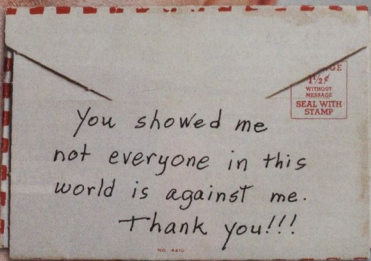 GE
1½¢
WITHOUT
MESSAGE
SEAL WITH
STAMP
You showed me
not everyone in this
world is against me.
Thank you!!!